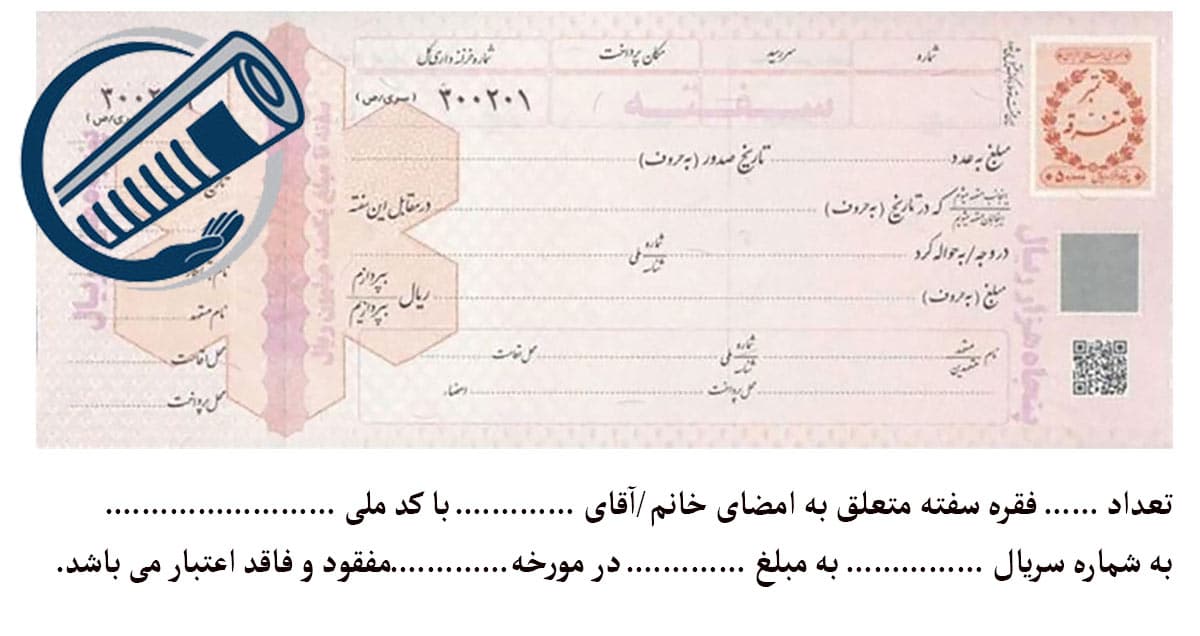 شماره سررسید مکان پرداخت شماره خزانه داری کل
سفته
۳۰۰۲۰۱ (سری/ص)
تمبر
متفرقه
مبلغ به عدد تاریخ صدور (به حروف)
که در تاریخ (به حروف) در مقابل این سفته
در وجه/به حواله کرد شماره شناسه ملی
مبلغ (به حروف) ریال بپردازم بپردازیم
نام متعهد متعهدین شماره شناسه ملی محل اقامت
محل پرداخت امضاء
پنجاه هزار ریال
نام متعهد
محل اقامت
محل پرداخت
تعداد ...... فقره سفته متعلق به امضای خانم/آقای ............. با کد ملی .........................
به شماره سریال ............... به مبلغ ............. در مورخه.............مفقود و فاقد اعتبار می باشد.